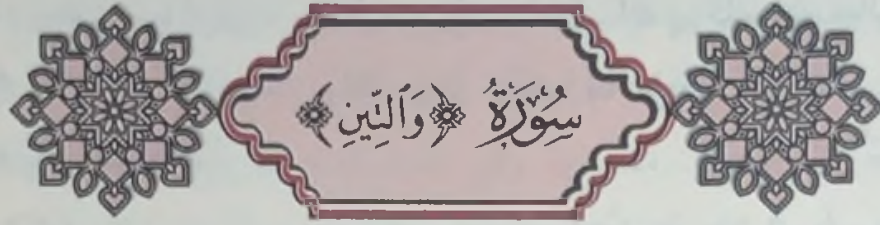 سُورَةُ ﴿وَٱلتِّينِ﴾